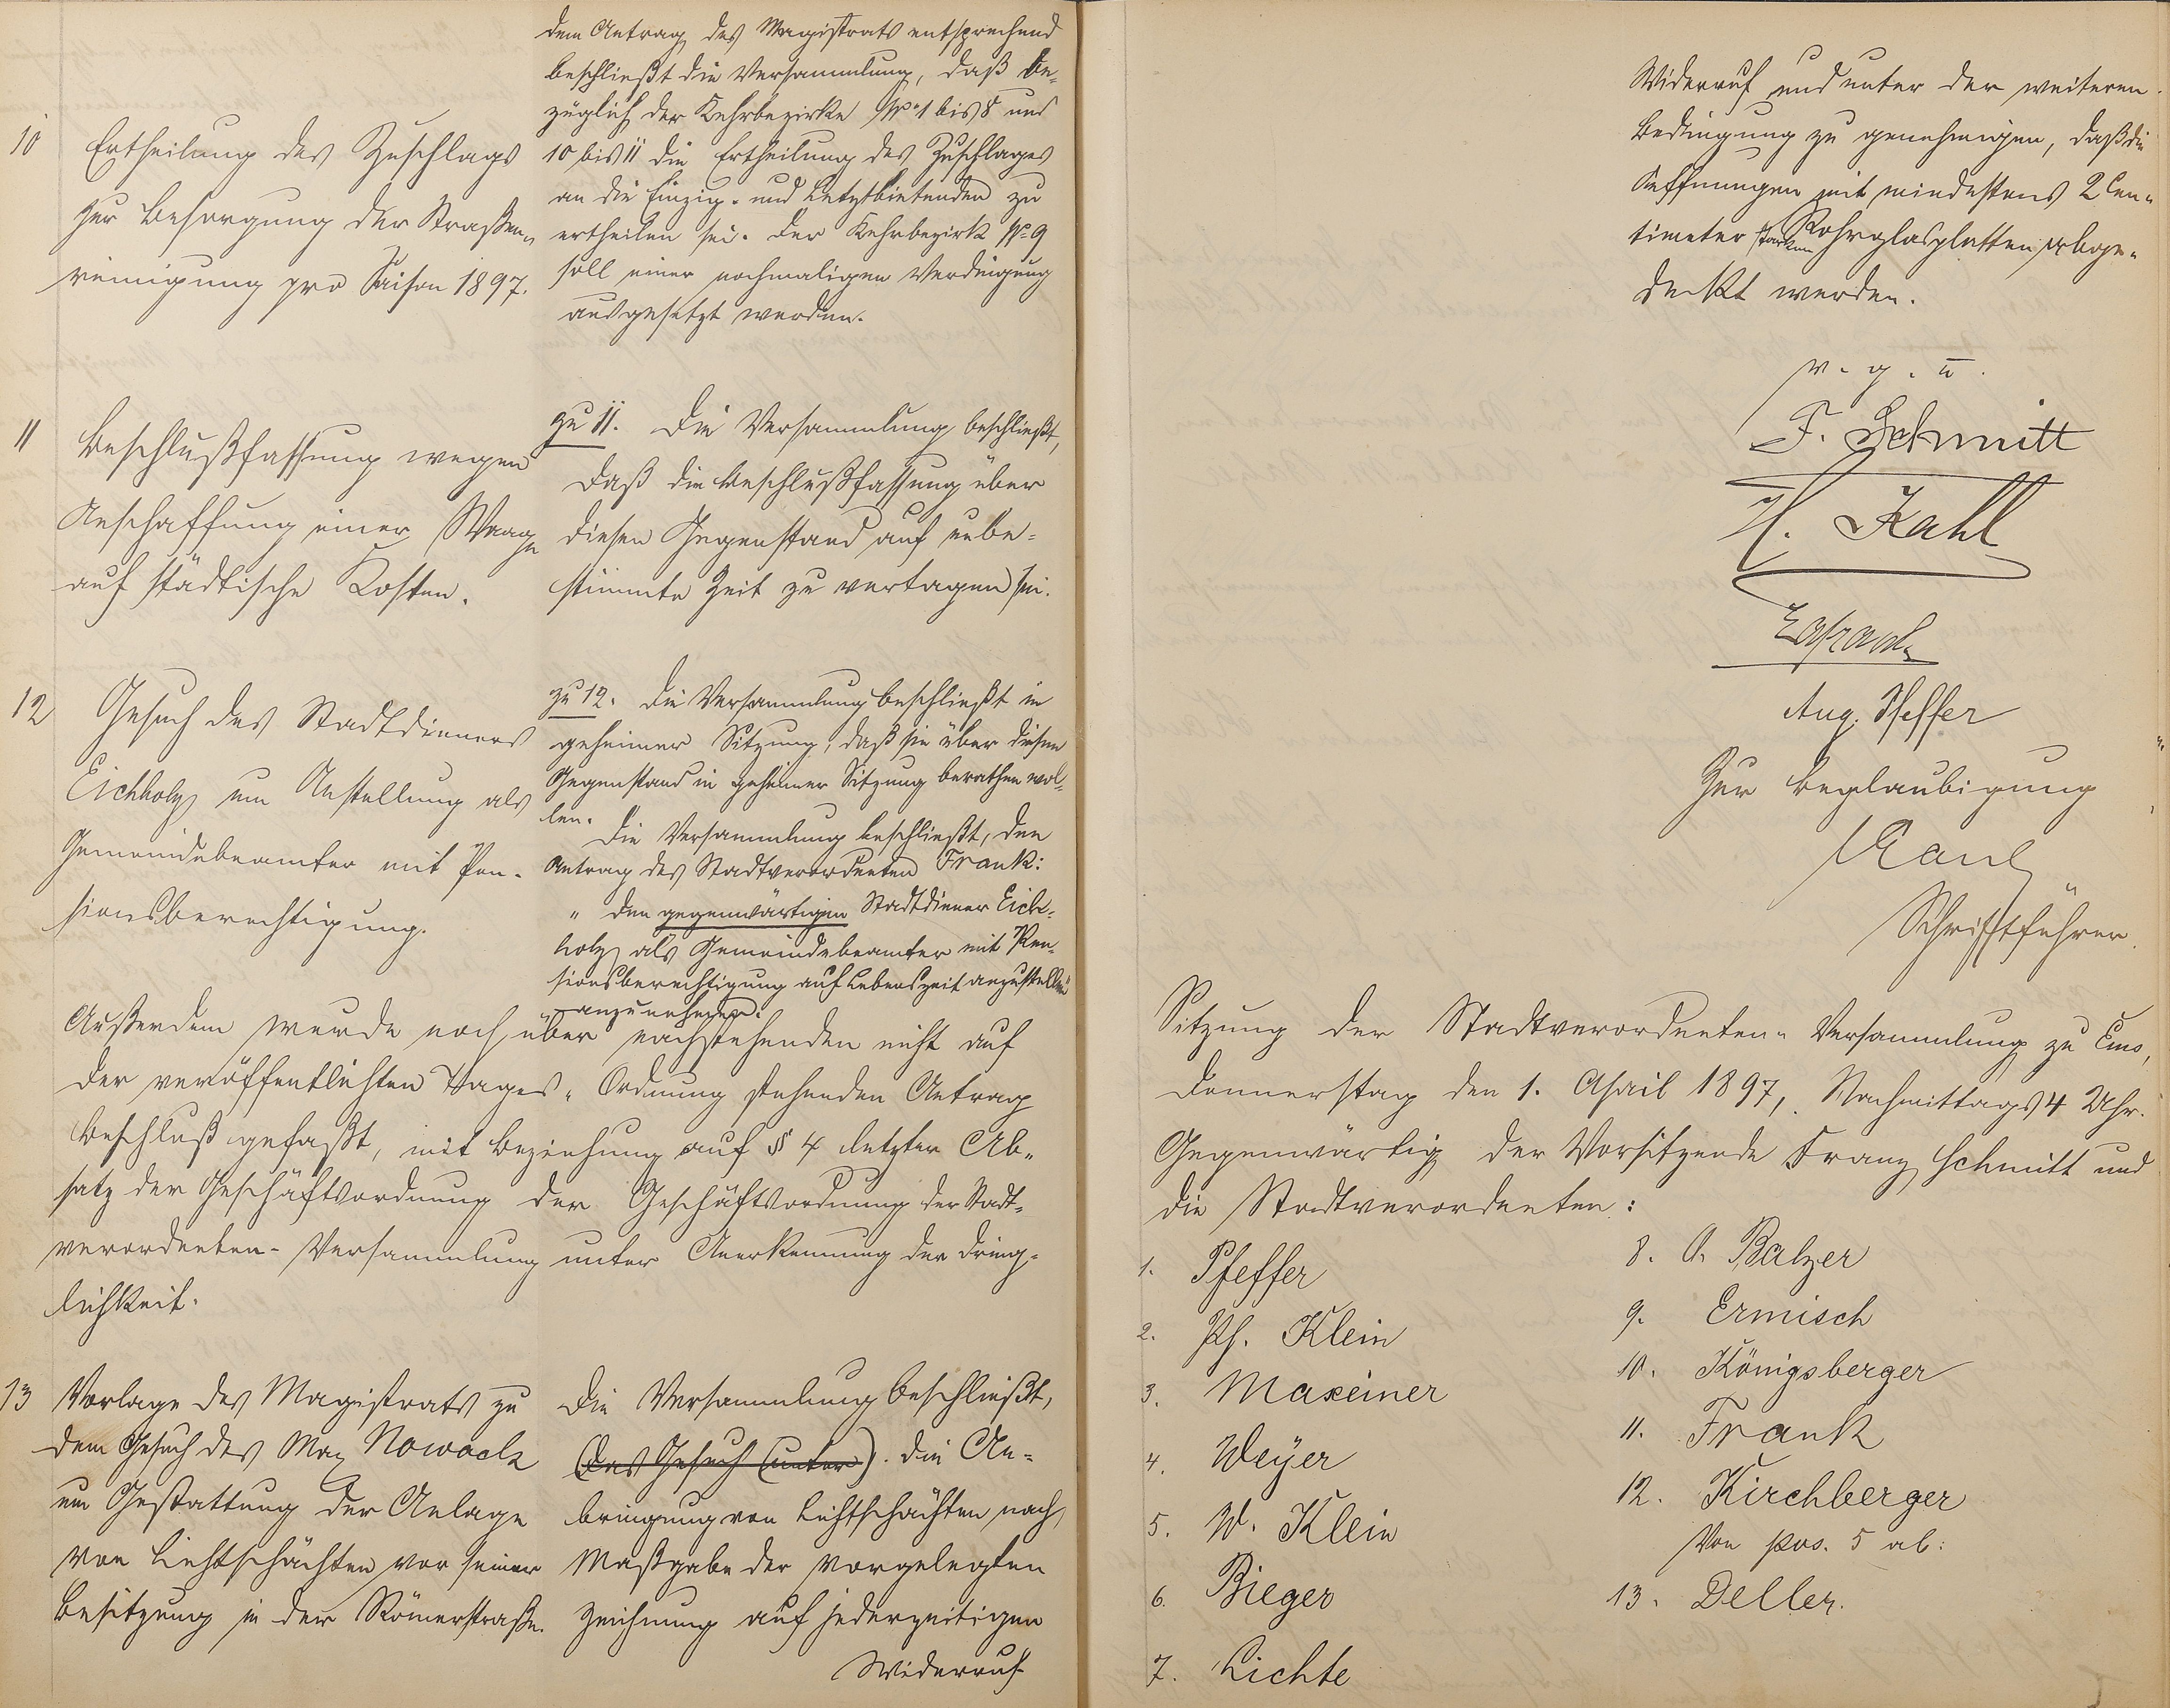 10
Ertheilung des Zuschlags
zur Besorgung der Straßen-
reinigung pro Saison 1897.
dem Antrag des Magistrats entsprechend
beschließt die Versammlung, daß be-
züglich der Kehrbezirke No 1 bis 8 und
10 bis 11 die Ertheilung des Zuschlages
an die Einzig- und Letztbietenden zu
ertheilen sei. Der Kehrbezirk No 9
soll einer nochmaligen Verdingung
ausgesetzt werden.
11
Beschlußfassung wegen
Anschaffung einer Waage
auf städtische Kosten.
zu 11. Die Versammlung beschließt,
daß die Beschlußfassung über
diesen Gegenstand auf unbe-
stimmte Zeit zu vertagen sei.
12
Gesuch des Stadtdieners
Eichholz um Anstellung als
Gemeindebeamter mit Pen-
sionsberechtigung.
zu 12. Die Versammlung beschließt in
geheimer Sitzung, daß sie über diesen
Gegenstand in geheimer Sitzung berathen wol-
len.
Die Versammlung beschließt, den
Antrag des Stadtverordneten Frank:
" den gegenwärtigen Stadtdiener Eich-
holz als Gemeindebeamter mit Pen-
sionsberechtigung auf Lebenszeit anzustellen"
anzunehmen.
Außerdem wurde noch über nachstehenden nicht auf
der veröffentlichten Tages-Ordnung stehenden Antrag
Beschluß gefaßt, mit Beziehung auf § 4 letzter Ab-
satz der Geschäftsordnung der Geschäftsordnung der Stadt-
verordneten-Versammlung unter Anerkennung der Dring-
lichkeit.
13
Vorlage des Magistrats zu
dem Gesuch des Max Nowack
um Gestattung der Anlage
von Lichtschächten vor seiner
Besitzung in der Römerstraße.
Die Versammlung beschließt,
(das Gesuch (unter). die An-
bringung von Lichtschächten nach
Maßgabe der vorgelegten
Zeichnung auf jederzeitigen
Widerruf
Widerruf und unter der weiteren
Bedingung zu genehmigen, daß die
Oeffnungen mit mindestens 2 Cen-
timeter starken Rohglasplatten abge-
deckt werden.
v. g. u.
F. Schmitt
H. Kahl
Aug. Pfeffer
Zur Beglaubigung
Kaul
Schriftführer.
Sitzung der Stadtverordneten-Versammlung zu Ems,
Donnerstag den 1. April 1897, Nachmittags 4 Uhr.
Gegenwärtig der Vorsitzende Franz Schmitt und
die Stadtverordneten:
1. Pfeffer
2. Ph. Klein
3. Maxeiner
4. Weyer
5. W. Klein
6. Bieger
7. Lichte
8. O. Balzer
9. Ermisch
10. Königsberger
11. Frank
12. Kirchberger
Von pos. 5 ab:
13. Deller.